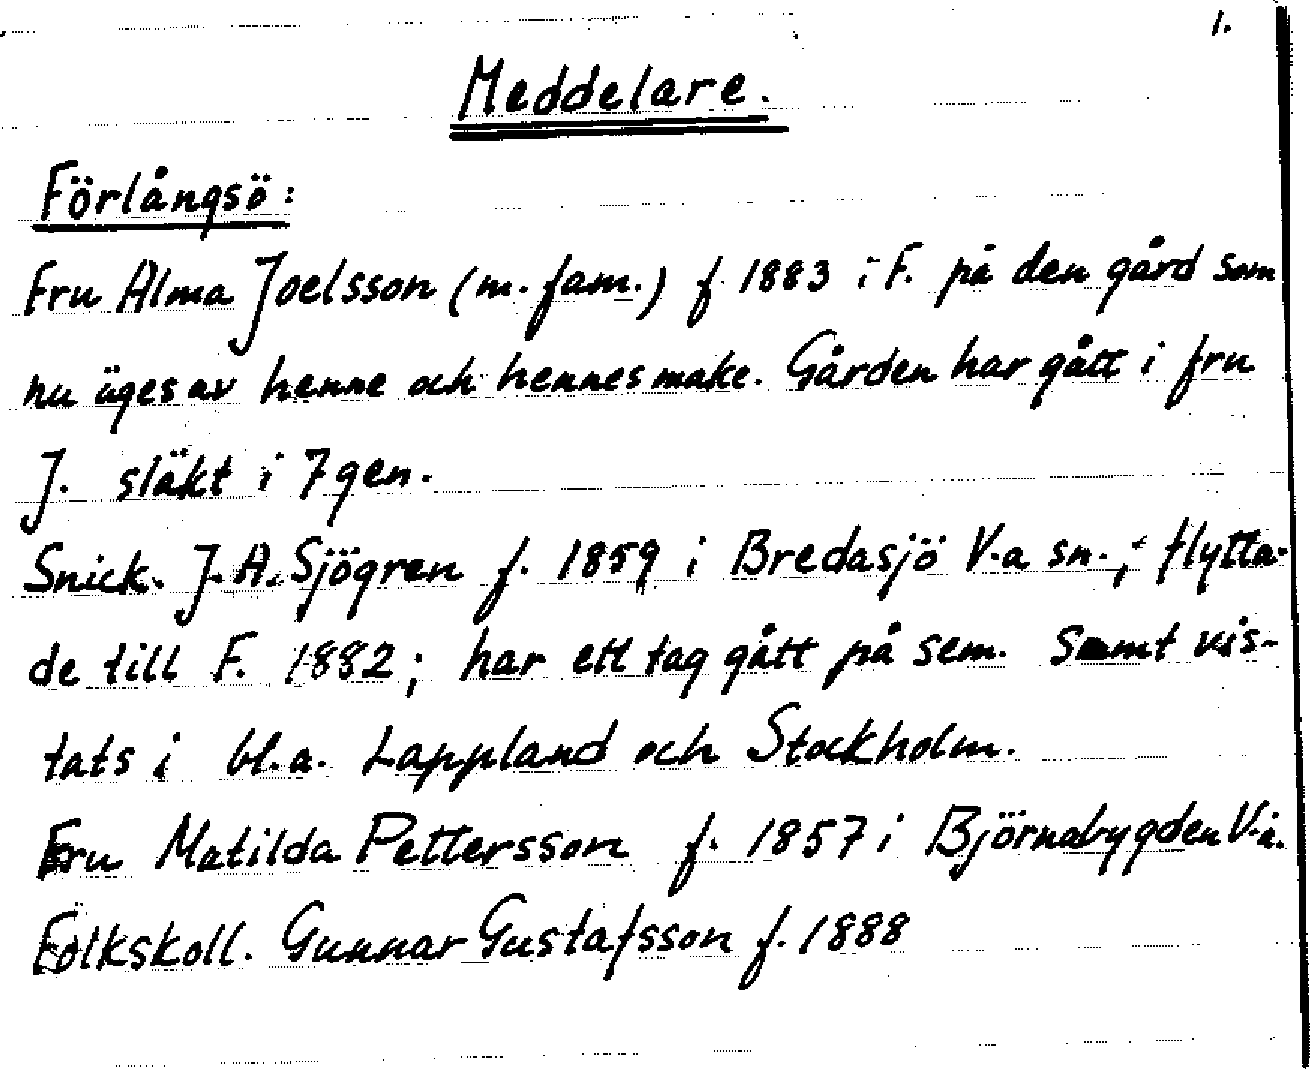 1.
Meddelare.
Förlångsö:
Fru Alma Joelsson (m. fam.) f. 1883 i F. på den gård som
nu äges av henne och hennes make. Gården har gått i fru
J. släkt i 7 gen.
Snick. J. A. Sjögren f. 1859 i Bredasjö V-a sn.; flytta-
de till F. 1882; har ett tag gått på sem. samt vis-
tats i bl.a. Lappland och Stockholm.
Fru Matilda Pettersson f. 1857 i Björnabygden V-a.
Folkskoll. Gunnar Gustafsson f. 1888